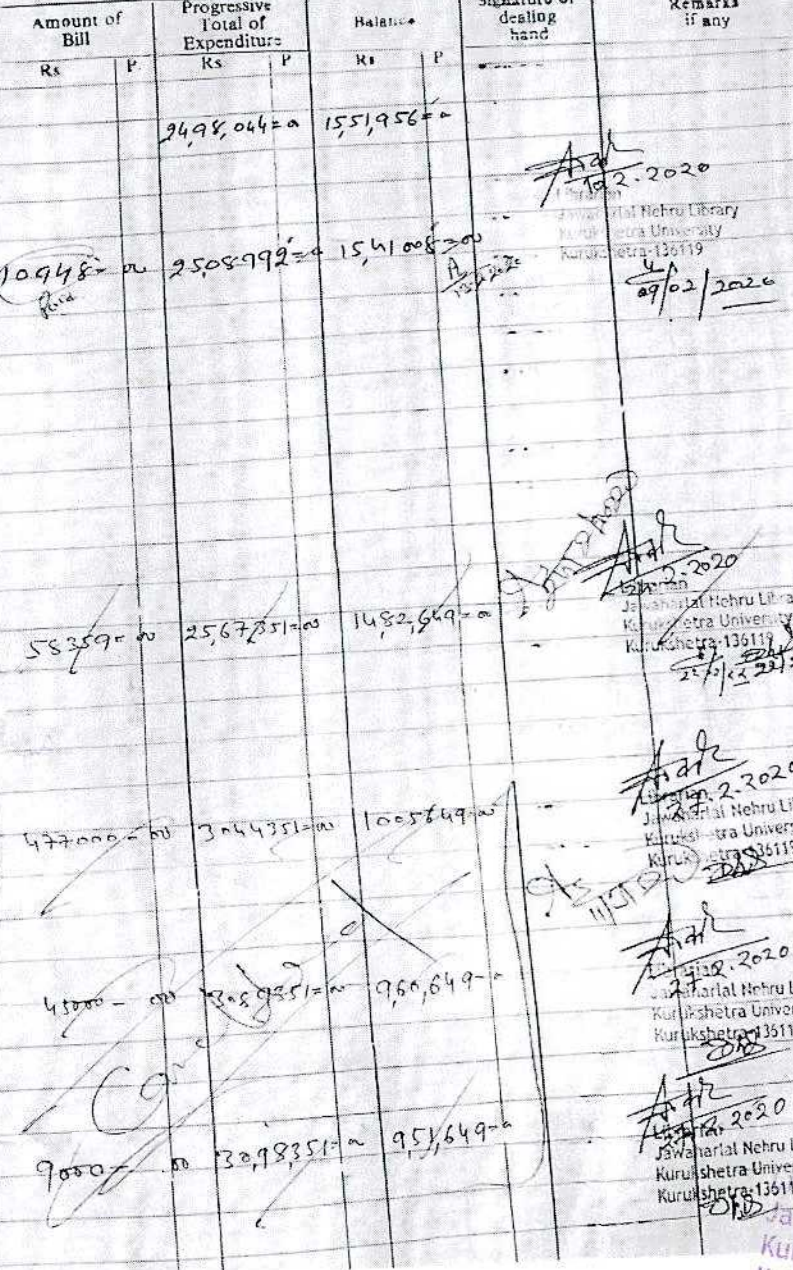 Amount of Bill | Progressive Total of Expenditure | Balance | Signature of dealing hand | Remarks if any
Rs P. | Rs P | Rs P
24,98,044=00 | 15,51,956=00
10.2.2020
Librarian
Jawaharlal Nehru Library
Kurukshetra University
Kurukshetra-136119
10948=00 | 25,08,992=00 | 15,41,008=00
Paid
09/02/2020
2.2020
Librarian
Jawaharlal Nehru Libra
Kurukshetra University
Kurukshetra-136119
58359=00 | 25,67,351=00 | 14,82,649=00
27.2.2020
Librarian
Jawaharlal Nehru Li
Kurukshetra Univers
Kurukshetra-136119
477000-00 | 3044351=00 | 1005649=00
27.2.2020
Librarian
Jawaharlal Nehru L
Kurukshetra Univer
Kurukshetra-13611
45000-00 | 3089351=00 | 9,60,649-00
2020
Librarian
Jawaharlal Nehru L
Kurukshetra Unive
Kurukshetra-13611
9000-00 | 30,98,351=00 | 9,51,649=00
Ja
Ku